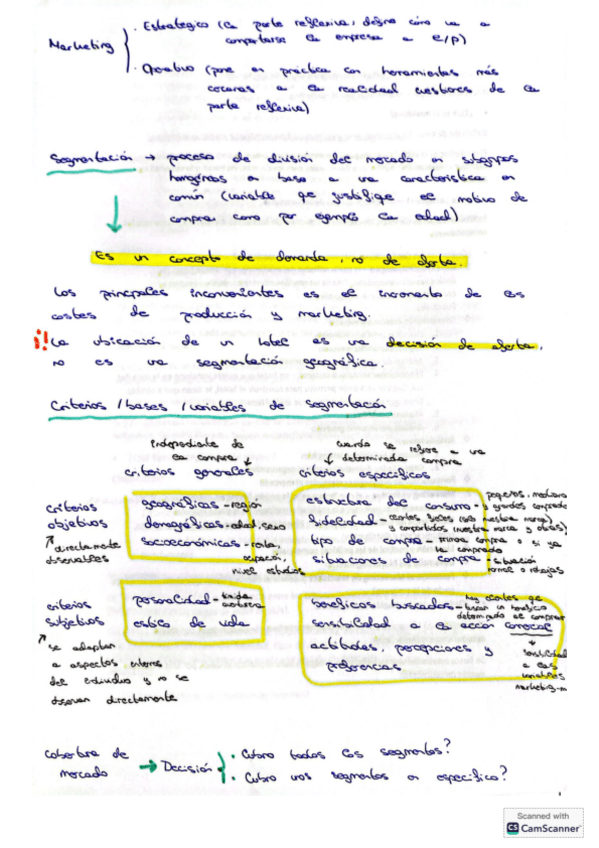 Marketing
· Estratégico (la parte reflexiva, define cómo va a
comportarse la empresa a c/p)
· Operativo (pone en práctica con herramientas más
cercanas a la realidad cuestiones de la
parte reflexiva)
Segmentación → proceso de división del mercado en subgrupos
homogéneos en base a una característica en
común (variable que justifique el motivo de
compra como por ejemplo la edad)
Es un concepto de demanda, no de oferta.
Los principales inconvenientes es el incremento de los
costes de producción y marketing.
¡! La ubicación de un hotel es una decisión de oferta,
no es una segmentación geográfica.
Criterios / bases / variables de segmentación
independiente de
la compra
criterios generales
cuando se refiere a una
determinada compra
criterios específicos
criterios
objetivos
directamente
observables
geográficas - región
demográficas - edad, sexo
socioeconómicas - renta,
ocupación,
nivel estudios
estructura del consumo -
pequeños, medianos
y grandes
fidelidad - clientes fieles (solo nuestra marca)
y compartidos (nuestra marca y otras)
tipo de compra - primera compra o si ya
la comprado
situaciones de compra - situación
normal o rebajas
criterios
subjetivos
se adaptan
a aspectos internos
del individuo y no se
observan directamente
personalidad -
estilo de vida
beneficios buscados -
hay clientes que
buscan un beneficio
determinado al comprar
sensibilidad a la acción comercial
actitudes, percepciones y
preferencias
sensibilidad
a las
variables
marketing-m
Cobertura de
mercado
→ Decisión
· Cubro todos los segmentos?
· Cubro unos segmentos en específico?
Scanned with
CS CamScanner